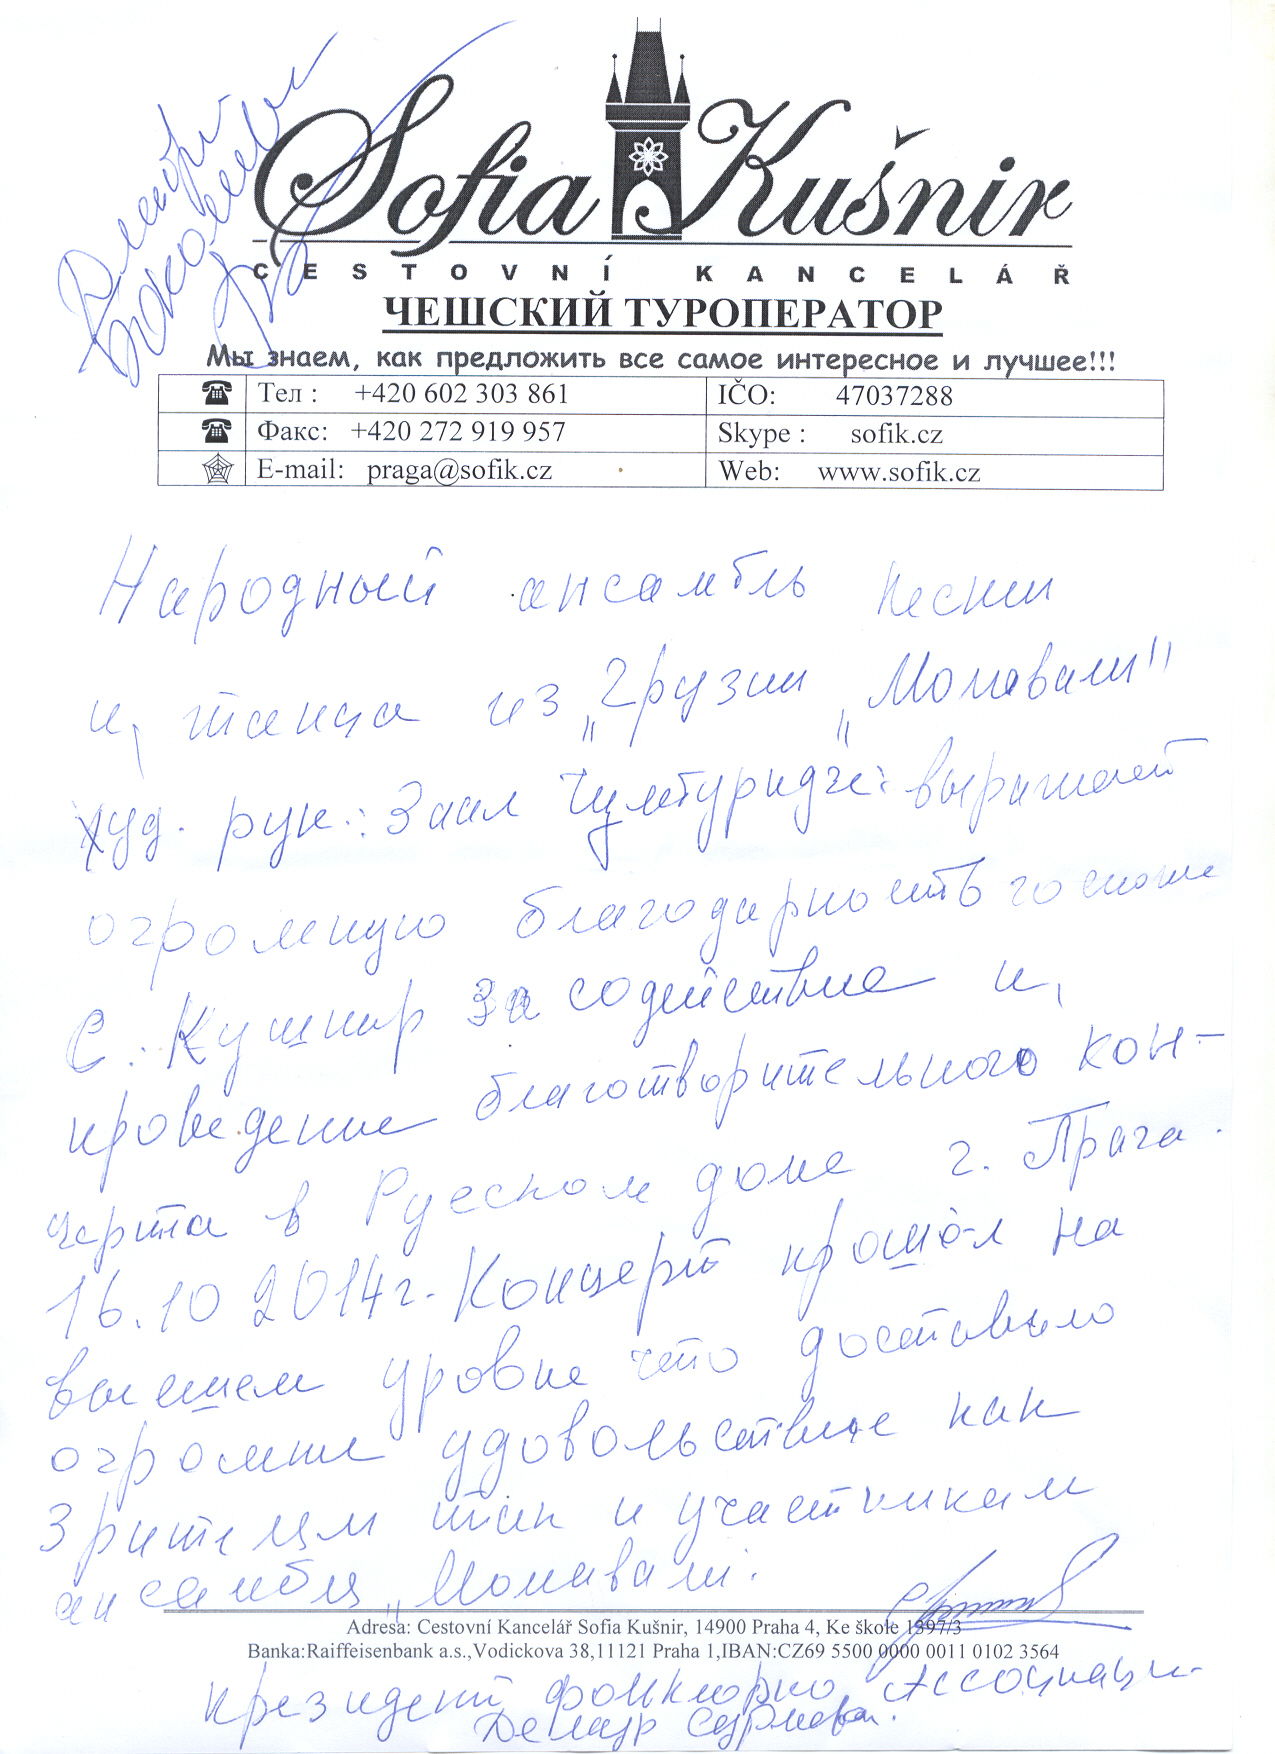 Sofia Kušnir
CESTOVNÍ KANCELÁŘ
ЧЕШСКИЙ ТУРОПЕРАТОР
Мы знаем, как предложить все самое интересное и лучшее!!!
Тел : +420 602 303 861 IČO: 47037288
Факс: +420 272 919 957 Skype : sofik.cz
E-mail: praga@sofik.cz Web: www.sofik.cz
Народный ансамбль песни
и танца из „Грузии „Momавали"
худ. рук.: Заал выражает
огромную благодарность госпоже
С. Кушнир за содействие и
проведение благотворительного кон-
черта в Русском доме г. Прага.
16.10 2014г. Концерт прошёл на
высшем уровне что доставило
огромне удовольствие как
Зрителям так и участникам
ансамбля „Момавали.
Adresa: Cestovní Kancelář Sofia Kušnir, 14900 Praha 4, Ke škole 1397/3
Banka:Raiffeisenbank a.s.,Vodickova 38,11121 Praha 1,IBAN:CZ69 5500 0000 0011 0102 3564
президент Ассоциаци